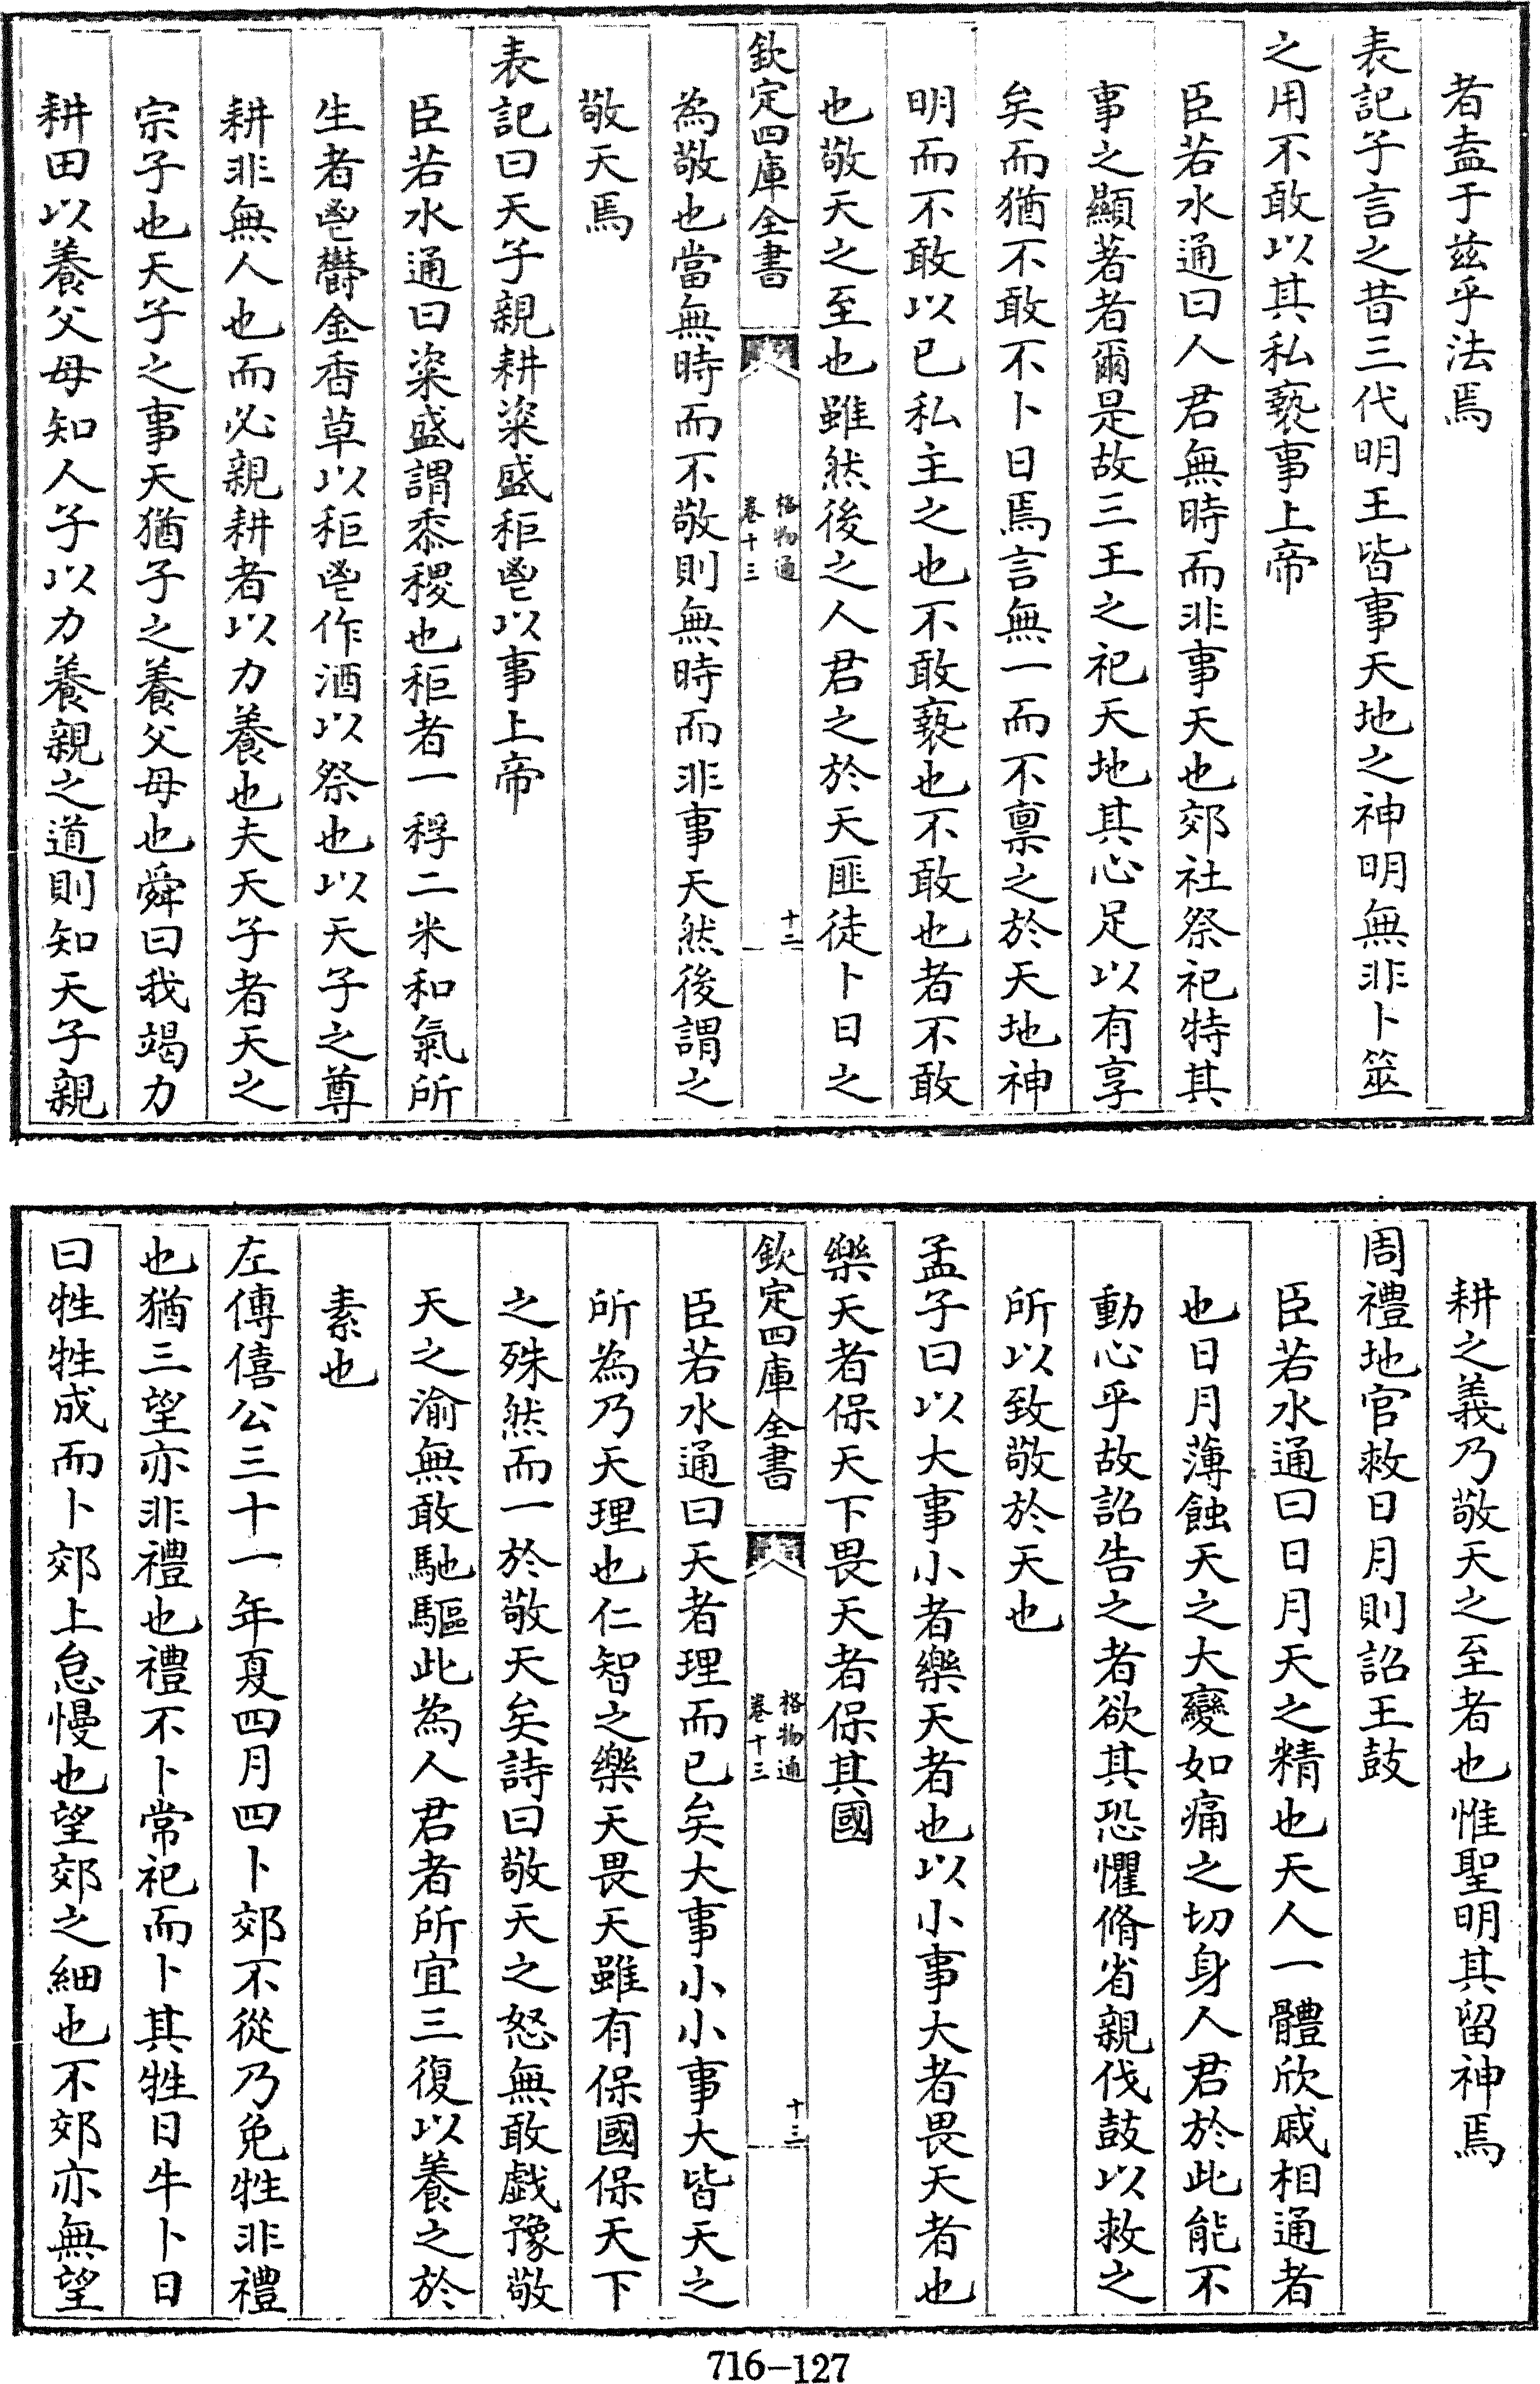 者盍于兹乎法焉
表記子言之昔三代明王皆事天地之神明無非卜筮
之用不敢以其私褻事上帝
臣若水通曰人君無時而非事天也郊社祭祀特其
事之顯著者爾是故三王之祀天地其心足以有享
矣而猶不敢不卜日焉言無一而不禀之於天地神
明而不敢以已私主之也不敢褻也不敢也者不敢
也敬天之至也雖然後之人君之於天匪徒卜日之
欽定四庫全書
格物通
卷十三
十二
為敬也當無時而不敬則無時而非事天然後謂之
敬天焉
表記曰天子親耕粢盛秬鬯以事上帝
臣若水通曰粢盛謂黍稷也秬者一稃二米和氣所
生者鬯欝金香草以秬鬯作酒以祭也以天子之尊
耕非無人也而必親耕者以力養也夫天子者天之
宗子也天子之事天猶子之養父母也舜曰我竭力
耕田以養父母知人子以力養親之道則知天子親
耕之義乃敬天之至者也惟聖明其留神焉
周禮地官救日月則詔王鼓
臣若水通曰日月天之精也天人一體欣戚相通者
也日月薄蝕天之大變如痛之切身人君於此能不
動心乎故詔告之者欲其恐懼脩省親伐鼓以救之
所以致敬於天也
孟子曰以大事小者樂天者也以小事大者畏天者也
樂天者保天下畏天者保其國
欽定四庫全書
格物通
卷十三
十三
臣若水通曰天者理而已矣大事小小事大皆天之
所為乃天理也仁智之樂天畏天雖有保國保天下
之殊然而一於敬天矣詩曰敬天之怒無敢戲豫敬
天之渝無敢馳驅此為人君者所宜三復以養之於
素也
左傳僖公三十一年夏四月四卜郊不從乃免牲非禮
也猶三望亦非禮也禮不卜常祀而卜其牲日牛卜日
曰牲牲成而卜郊上怠慢也望郊之細也不郊亦無望
716-127